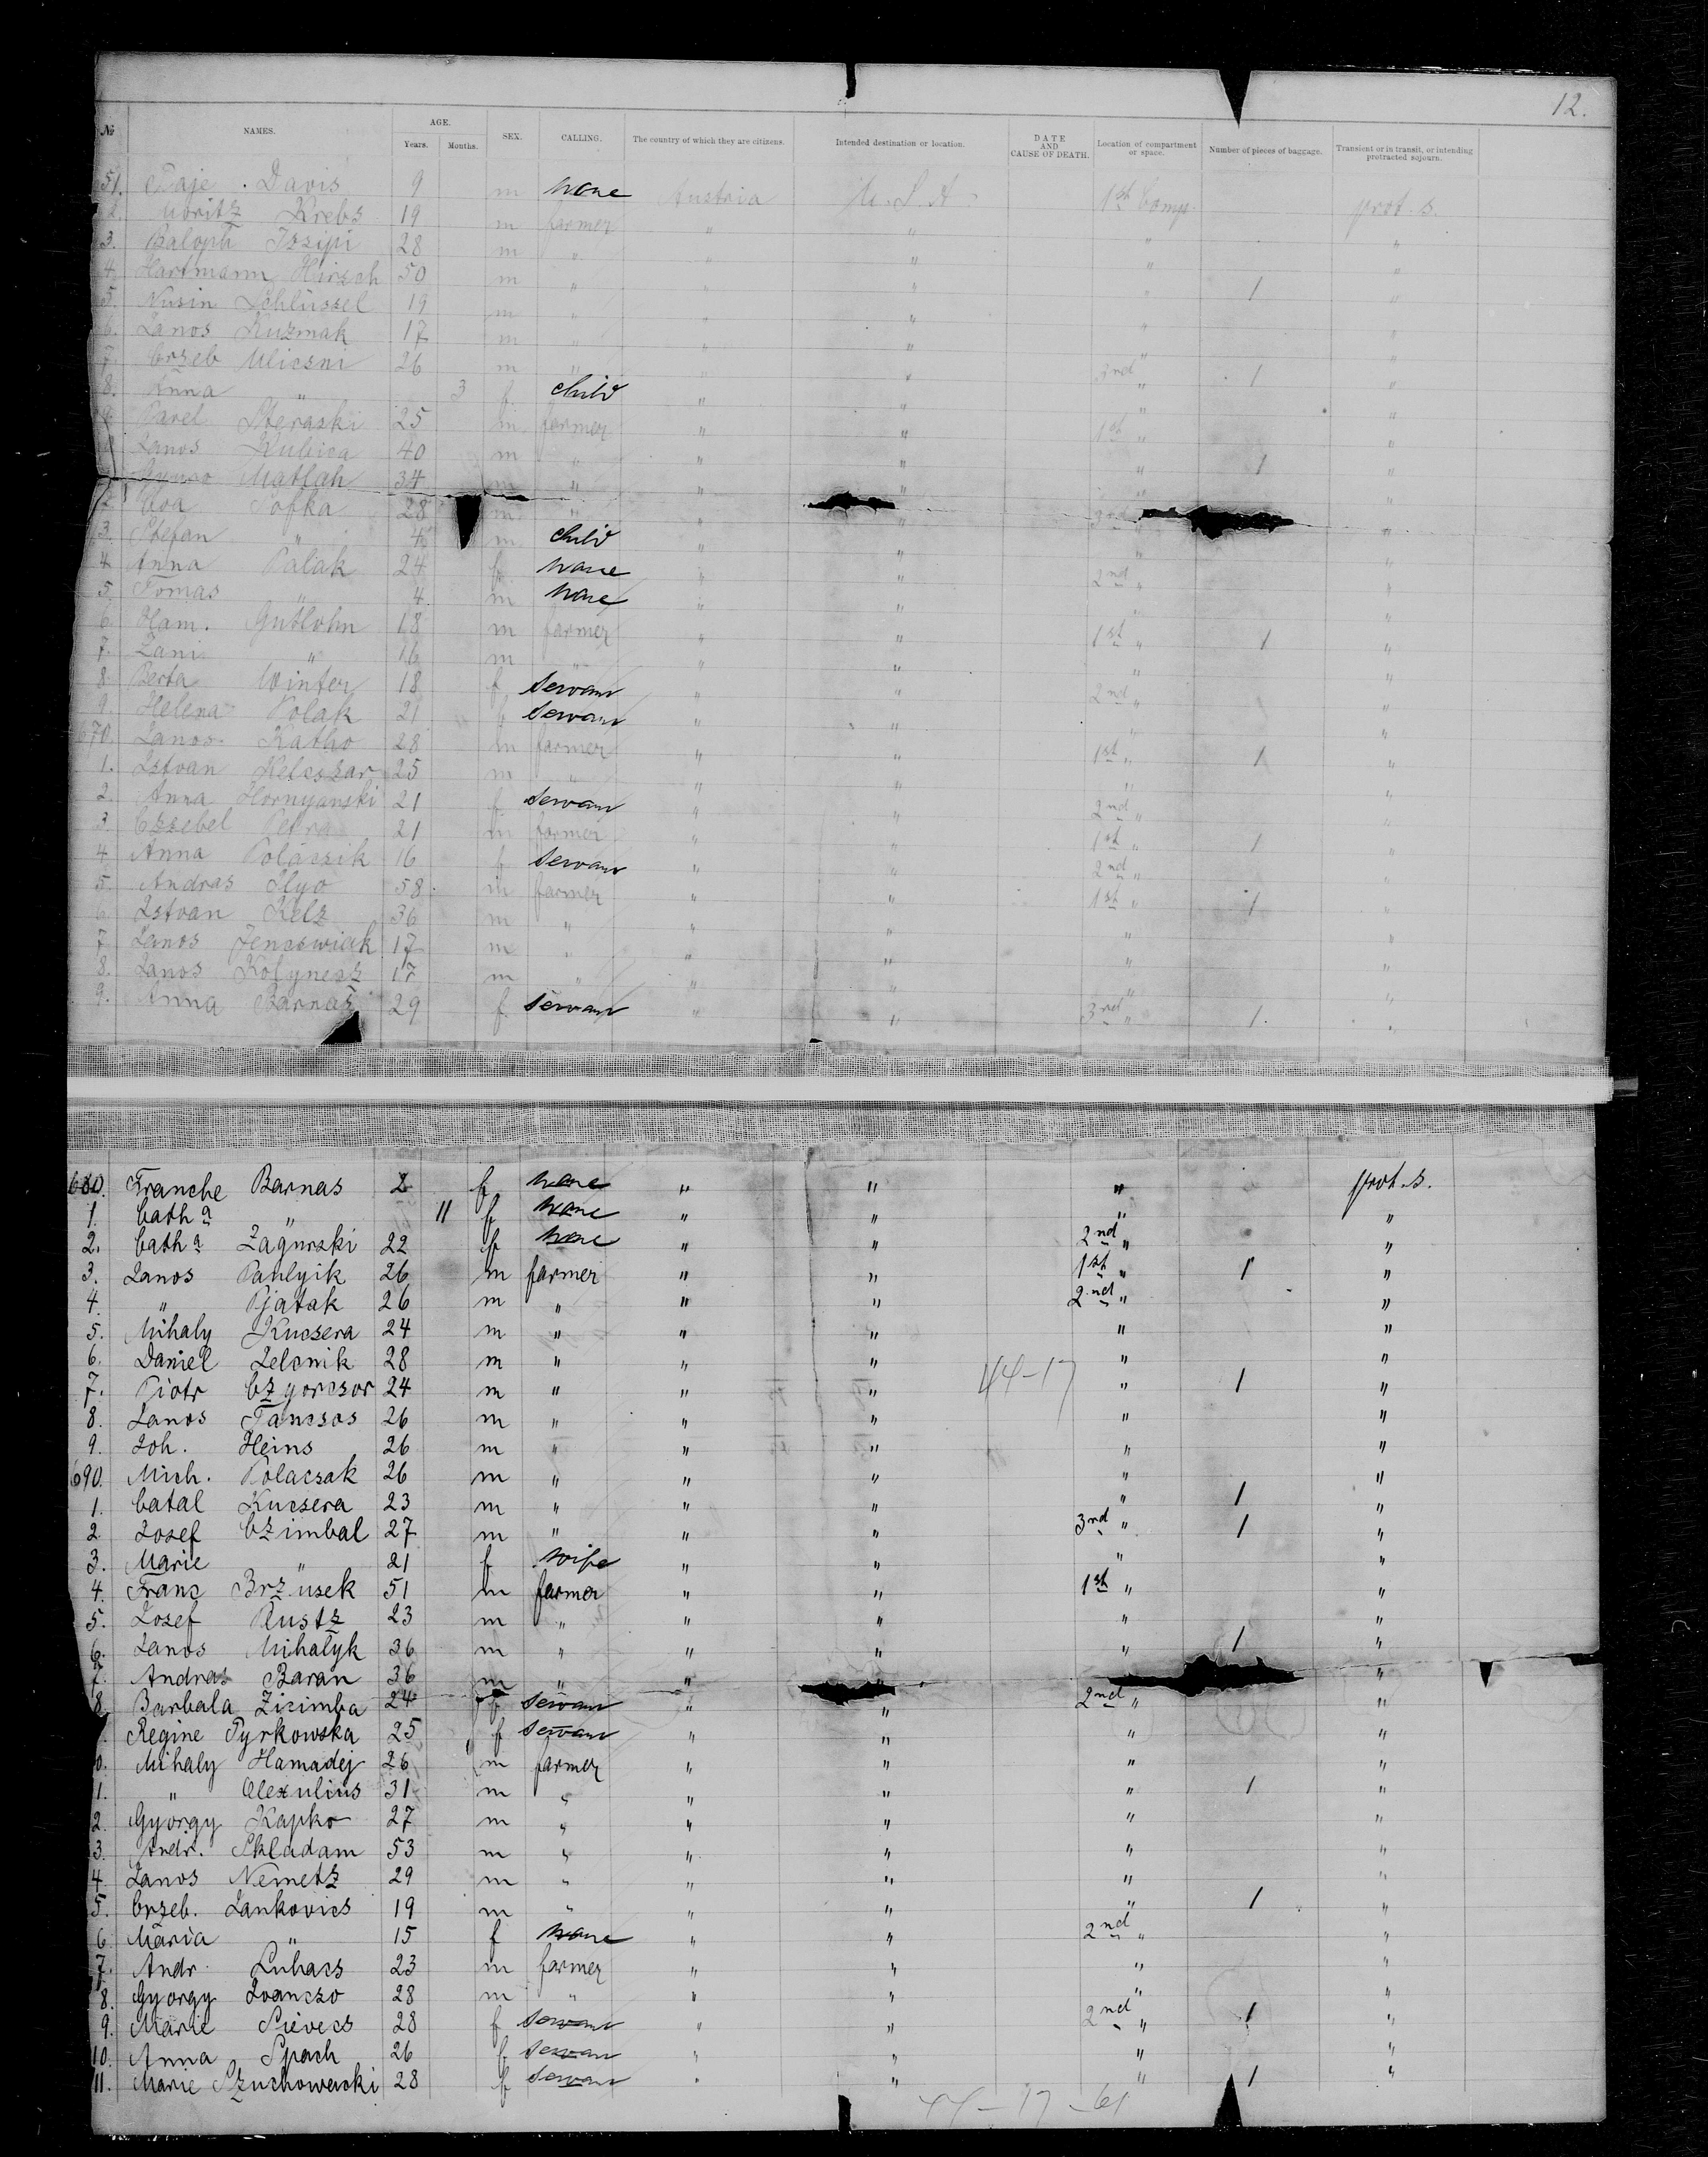 12.
No NAMES. AGE. Years. Months. SEX. CALLING. The country of which they are citizens. Intended destination or location. DATE AND CAUSE OF DEATH. Location of compartment or space. Number of pieces of baggage. Transient or in transit, or intending protracted sojourn.
51. Davis 9 m none Austria U. S. A. 1st Comp. prot. s.
2. Moritz Krebs 19 m farmer " " " "
3. Baloph Iszipi 28 m " " " " "
4. Hartmann Hirsch 50 m " " " " 1 "
5. Nusin Schlüssel 19 m " " " " "
6. Janos Kuzmak 17 m " " " " "
7. Erzeb Ulicsni 26 m " " " 3nd " 1 "
8. Anna " 3 f child " " " "
9. Pavel Steraski 25 m farmer " " 1st " "
Janos Kubica 40 m " " " " 1 "
Matlah 34 m " " " " "
2. Eva Sofka 28 m " " " 3rd "
3. Stefan " 4 m child " " " "
4 Anna Palak 24 f none " " 2nd " "
5. Tomas " 4. m none " " " "
6 Ham. Gutlohn 18 m farmer " " 1st " 1 "
7. Jani " 16 m " " " " "
8 Berta Winter 18 f servant " " 2nd " "
9. Helena Polak 21 f servant " " " "
670. Janos Katho 28 m farmer " " 1st " 1 "
1. Istvan Kelcszar 25 m " " " " "
2. Anna Hornyanski 21 f servant " " 2nd " "
3. Erzebel Petra 21 m farmer " " 1st " 1 "
4. Anna Polácsik 16 f servant " " 2nd " "
5. Andras Ilyo 58 m farmer " " 1st " 1 "
6. Istvan Kelz 36 m " " " " "
7 Janos Jencswiak 17 m " " " " "
8. Janos Kolynesz 17 m " " " " "
9. Anna Barnas 29 f servant " " 3rd " 1 "
680. Franche Barnas 2 f none " " " prot. s.
1. Catha " 11 f none " " " "
2. Catha Zagurski 22 f none " " 2nd " "
3. Janos Paulyik 26 m farmer " " 1st " 1 "
4. " Pjatak 26 m " " " 2nd " "
5. Mihaly Kucsera 24 m " " " " "
6. Daniel Zelenik 28 m " " " " "
7. Piotr Czgonczor 24 m " " " 44-17 " 1 "
8. Janos Tancsos 26 m " " " " "
9. Joh. Heins 26 m " " " " "
690. Mich. Polacsak 26 m " " " " "
1. Catal Kucsera 23 m " " " " 1 "
2 Josef Czimbal 27 m " " " 3rd " 1 "
3. Marie " 21 f wife " " " "
4. Franc Brzusek 51 m farmer " " 1st " "
5. Josef Rustz 23 m " " " " "
6. Janos Mihalyk 36 m " " " " 1 "
7. Andras Baran 36 m " " " "
8 Barbala Zicimba 24 f servant " " 2nd " "
Regine Pyrkowska 25 f servant " " " "
0. Mihaly Hamadej 26 m farmer " " " "
1. " Olexulius 31 m " " " " 1 "
2. Gyorgy Kapko 27 m " " " " "
3. Andr. Skladam 53 m " " " " "
4. Janos Nemetz 29 m " " " " "
5. Erzeb. Jankovics 19 m " " " " 1 "
6 Maria " 15 f none " " 2nd " "
7. Andr. Luhacs 23 m farmer " " " "
8. Gyorgy Ivanczo 28 m " " " " "
9. Marie Sievecs 28 f servant " " 2nd " 1 "
10. Anna Spach 26 f servant " " " "
11. Marie Szuchowerski 28 f servant " " " 1 "
44-17-61